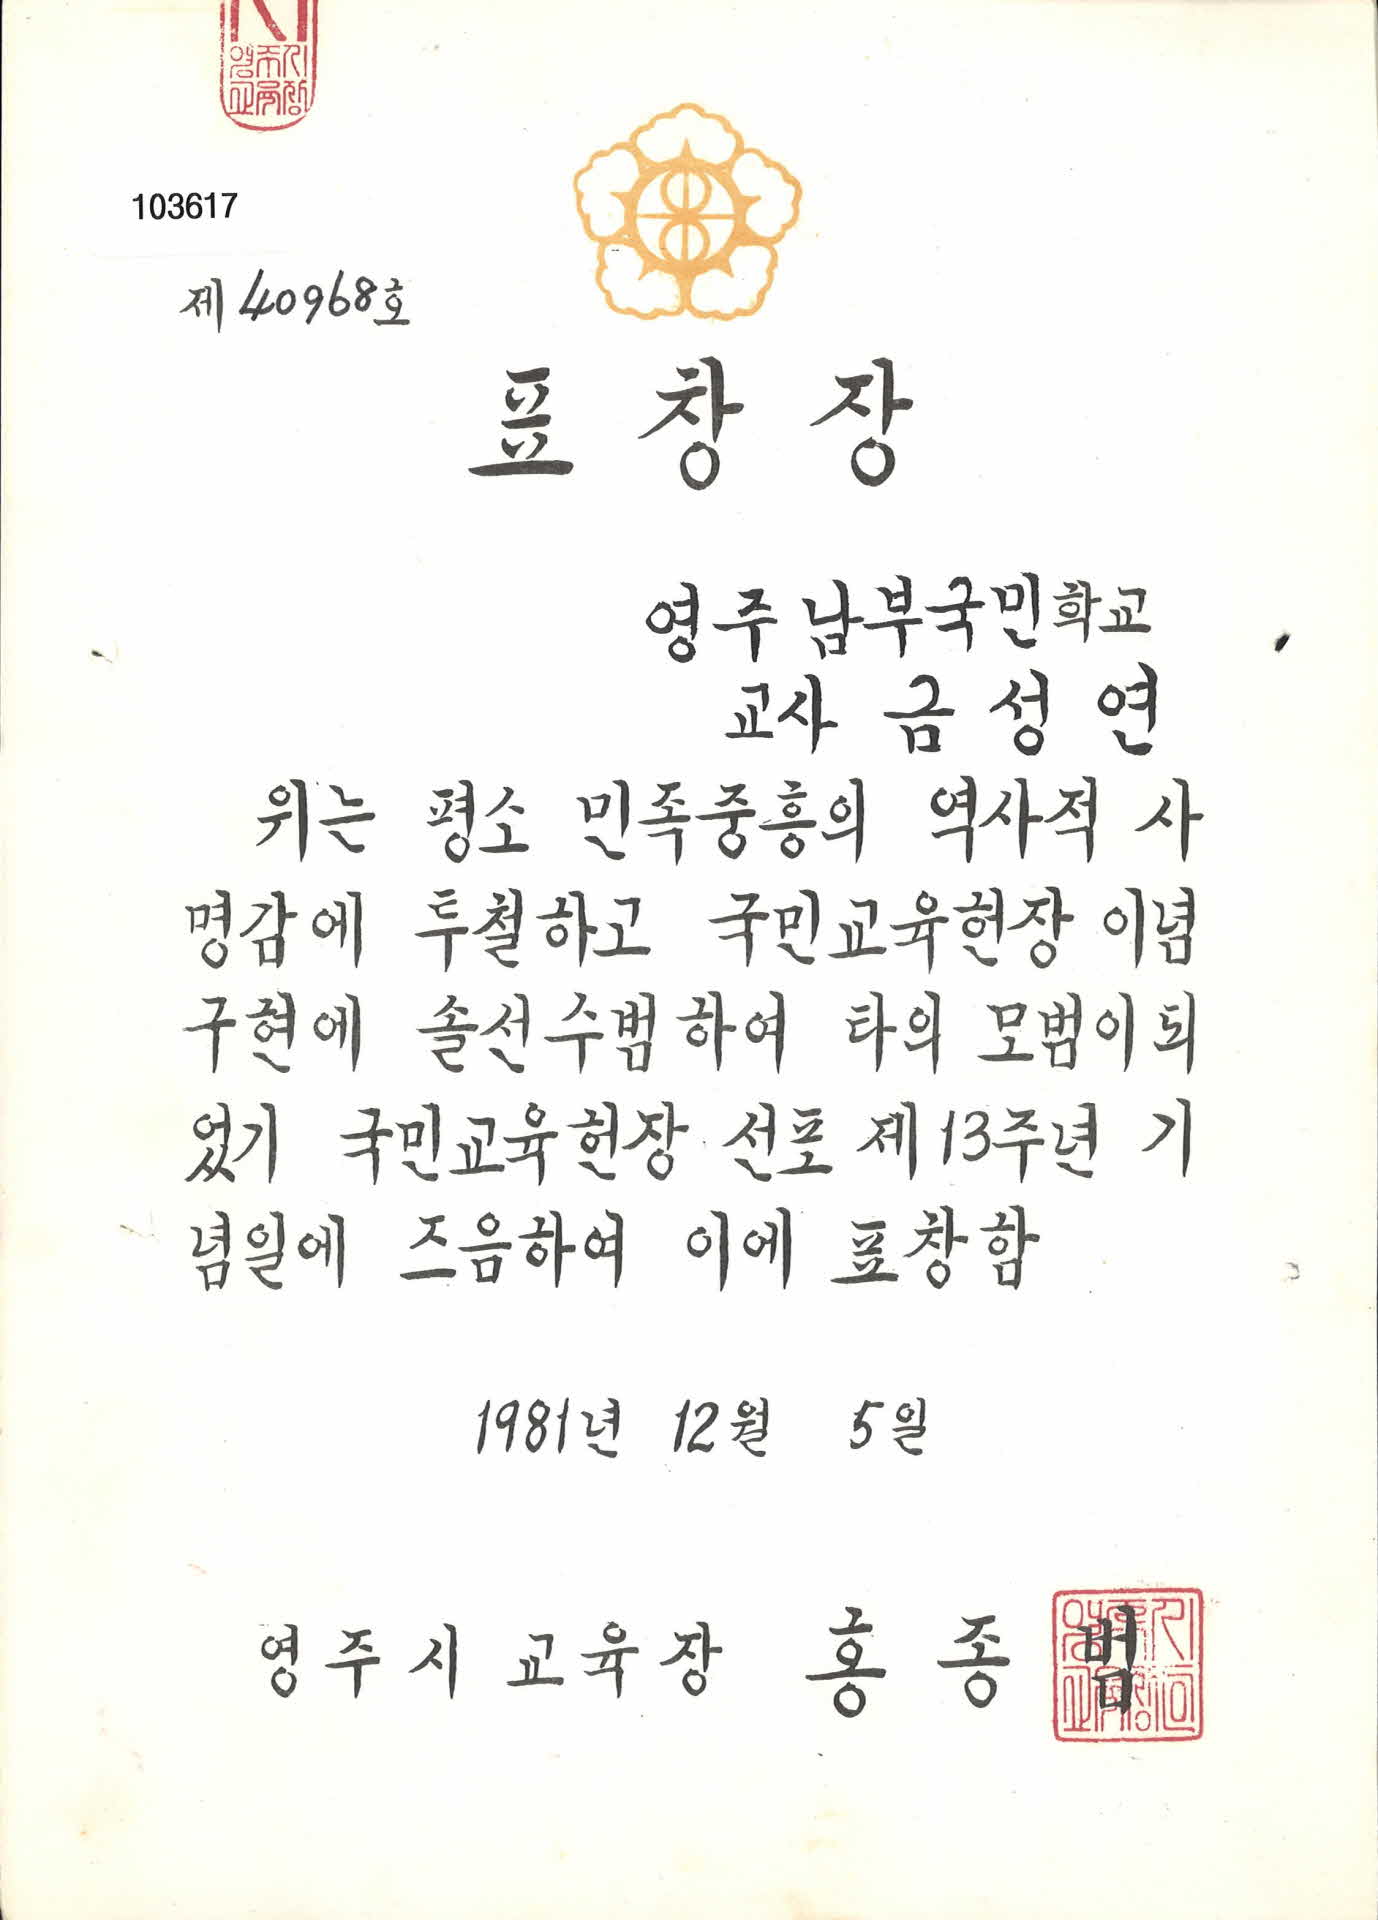 103617
제 40968호
표 창 장
영주 남부국민학교
교사 금 성 연
위는 평소 민족중흥의 역사적 사
명감에 투철하고 국민교육헌장 이념
구현에 솔선수범하여 타의 모범이되
었기 국민교육헌장 선포 제13주년 기
념일에 즈음하여 이에 표창함
1981년 12월 5일
영주시 교육장 홍종범